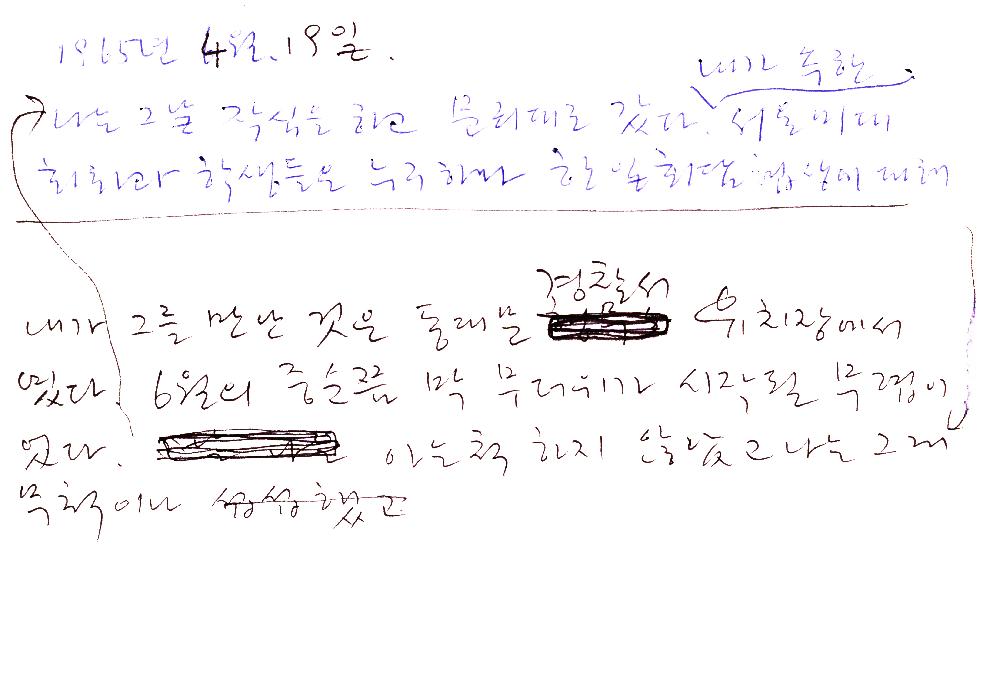 1965년 4월.19일.
내가 속한
나는 그날 작심을 하고 문리대로 갔다. 서울미대
회화과 학생들은 누구하나 한일회담 협상에 대해
경찰서
내가 그를 만난 것은 동대문 유치장에서
였다. 6월의 중순쯤 막 무더위가 시작될 무렵이
었다. 아는척 하지 않았고 나는 그래
무척이나 섭섭했고